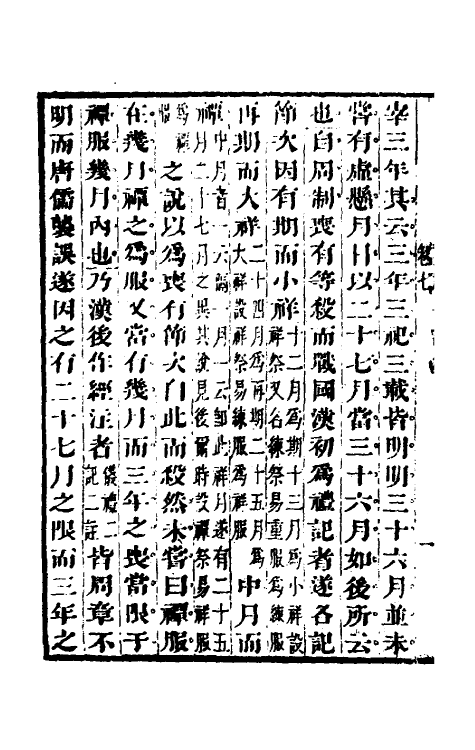 卷七
宰三年其云三年三祀三載皆明明三十六月並未
嘗有虛懸月日以二十七月當三十六月如後所云
也自周制喪有等殺而戰國漢初為禮記者遂各記
節次因有期而小祥十二月為期十三月為小祥設祥祭又名練祭易重服為練服
再期而大祥二十四月為再期二十五月為大祥設祥祭易練服為祥服中月而
禫中月音一云隔一月一云卽此祥月遂有二十五月二十七月之異其說見後爾時設禫祭易祥服為禫服
之說以為喪有節次自此而殺然未嘗曰禫服
在幾月禫之為服又當有幾月而三年之喪當限于
禫服幾月內也乃漢後作經注者儀禮二記二註皆周章不
明而唐儒襲誤遂因之有二十七月之限而三年之